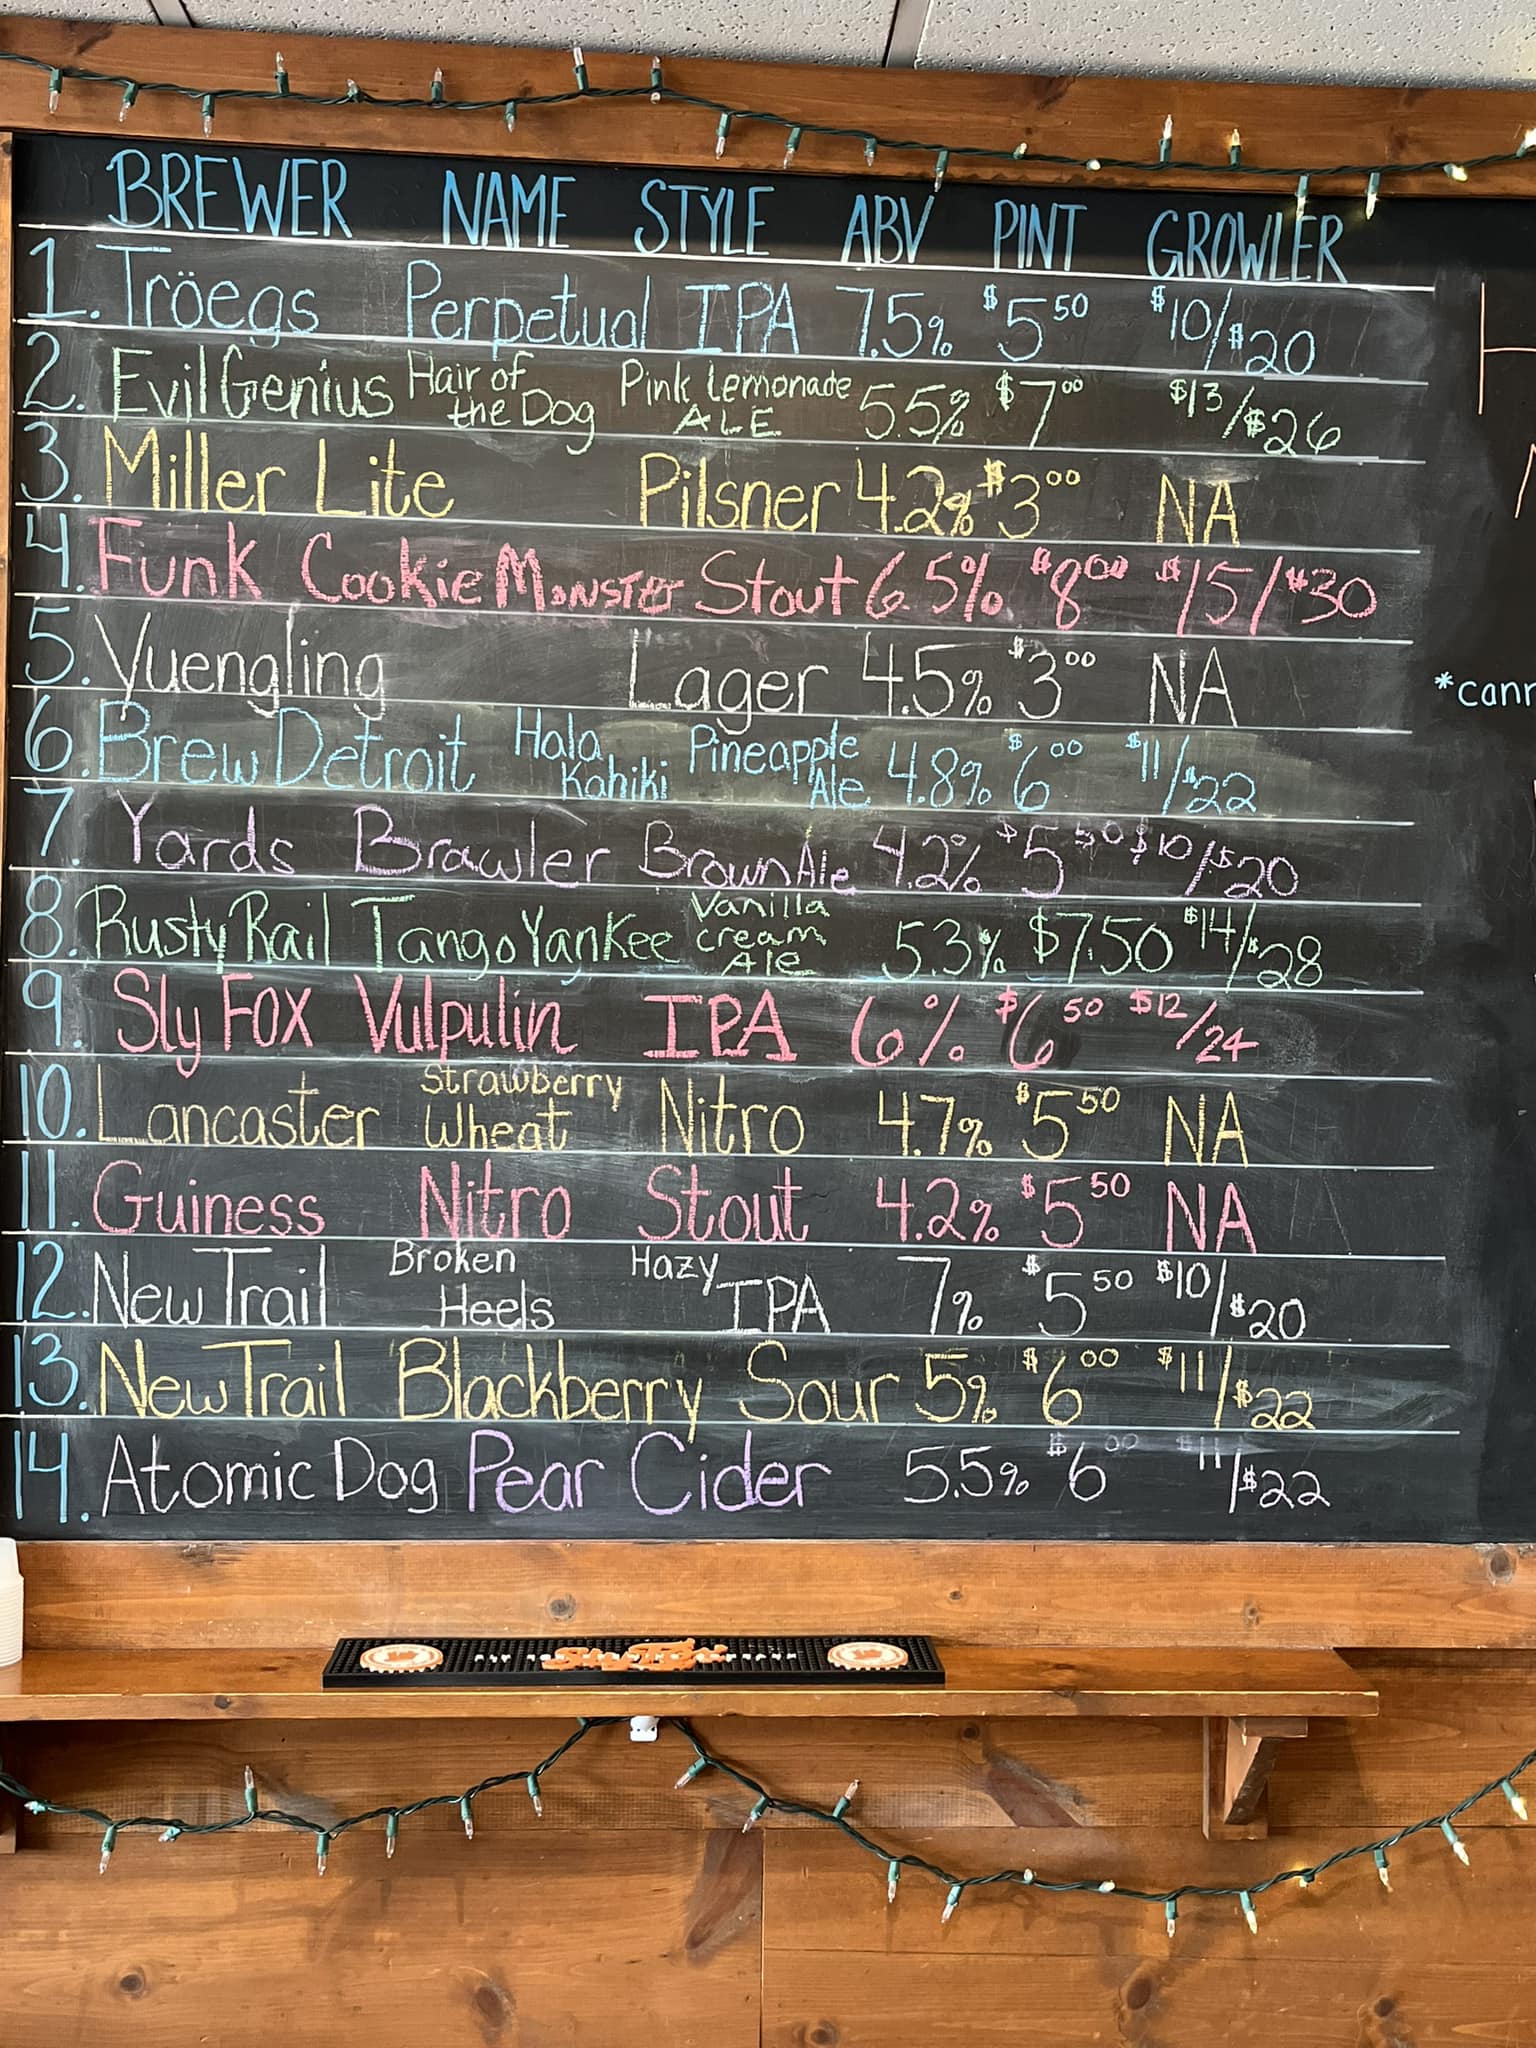 BREWER NAME STYLE ABV PINT GROWLER
1. Tröegs Perpetual IPA 7.5% $5 50 $10/$20
2. Evil Genius Hair of the Dog Pink Lemonade ALE 5.5% $7 00 $13/$26
3. Miller Lite Pilsner 4.2% $3 00 NA
4. Funk Cookie Monster Stout 6.5% $8 00 $15/$30
5. Yuengling Lager 4.5% $3 00 NA
*cann
6. Brew Detroit Hala Kahiki Pineapple Ale 4.8% $6 00 $11/$22
7. Yards Brawler Brown Ale 4.2% $5 50 $10/$20
8. Rusty Rail Tango Yankee Vanilla cream Ale 5.3% $7.50 $14/$28
9. Sly Fox Vulpulin IPA 6% $6 50 $12/24
10. Lancaster Strawberry Wheat Nitro 4.7% $5 50 NA
11. Guiness Nitro Stout 4.2% $5 50 NA
12. New Trail Broken Heels Hazy IPA 7% $5 50 $10/$20
13. New Trail Blackberry Sour 5% $6 00 $11/$22
14. Atomic Dog Pear Cider 5.5% $6 00 $11/$22